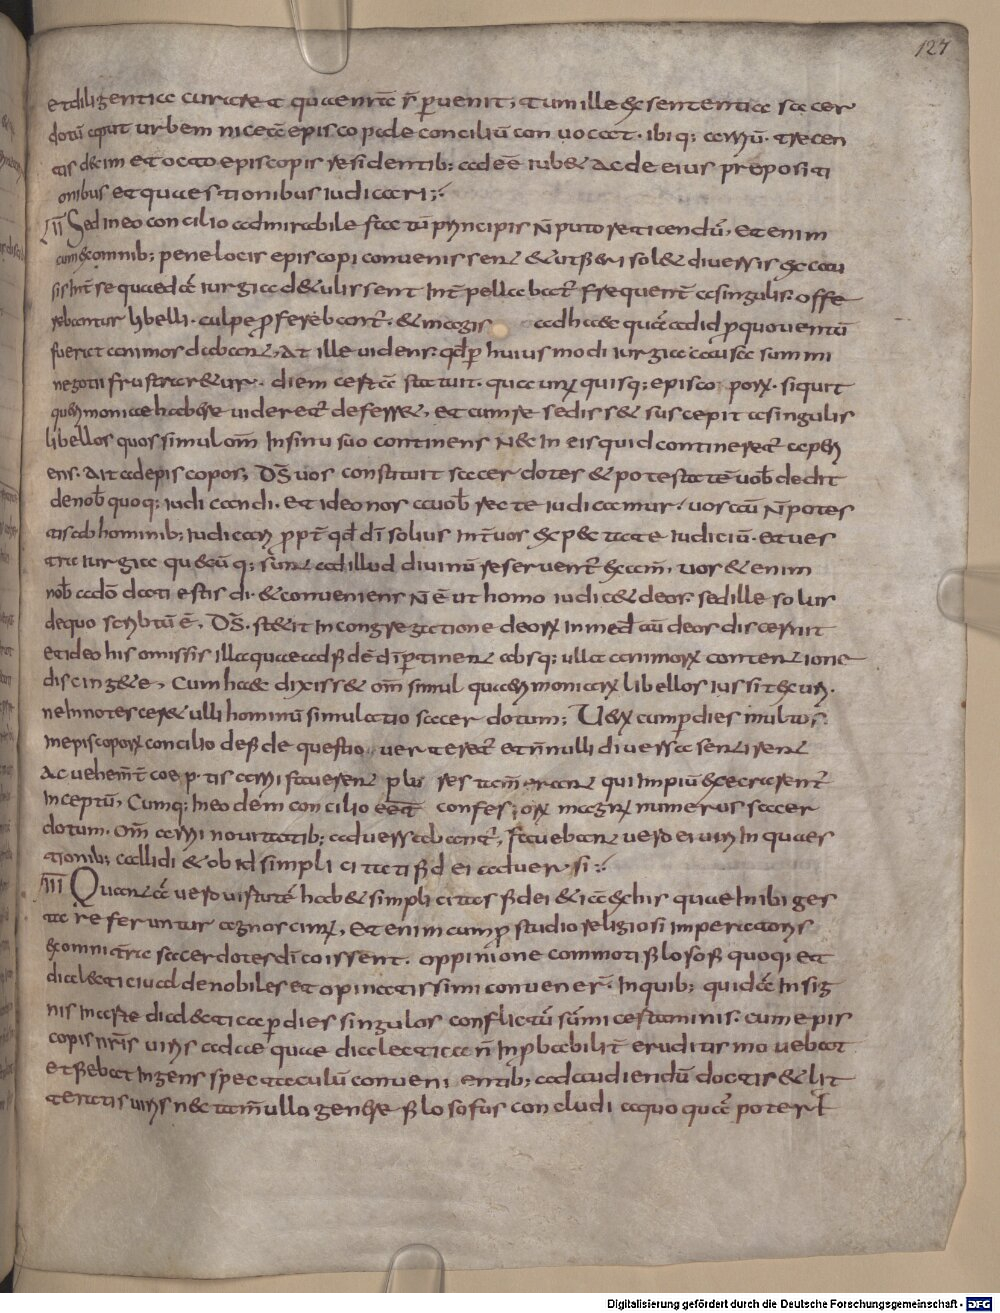 127
et diligentia curaret quae nrae r̄ ꝑuenit, tum ille ex sententia sacer
dotū aput urbem nicetā episcopale conciliū conuocat. ibiq; arriū. trecen
tis decim et octo episcopis residentib; adeē iubet ac de eius preposi ti
onibus et quaestionibus iudicari;
II Sed in eo concilio admirabile factū principis n̄ puto reticendū, et enim
cum ex omnib; pene locis episcopi conuenissent & ut fieri solet diuersis ex cau
sis int̄ se quaedā iurgia detulissent int̄pellabat̄ frequent̄ a singulis. offe
rebantur libelli. culpe ꝓferebant̄. & magis ad haec quā ad id ꝓ quo uentū
fuerat animos dabant, At ille uidens qd̄ ꝑ huiusmodi iurgia causa summi
negotii frustraretur. diem certā statuit. qua unusquisq; episcoporum. siquit
querimoniae habere uideret̄ deferret, et cum resedisset suscepit a singulis
libellos quos simul om̄ in sinu suo continens nec in eis quid contineret̄ aperi
ens. Ait ad episcopos, D̄s uos constituit sacerdotes & potestatē uob̄ dedit
de nob̄ quoq; iudicandi. et ideo nos a uob̄ recte iudicamur. uos autē n̄ potes
tis ab hominib; iudicari ꝓpt̄ qd̄ dī solius int̄ uos expectate iudiciū. et ues
tra iurgia quęcūq; sunt ad illud diuinū reseruent̄ examē, uos et enim
nob̄ a dō dati estis di. & conueniens n̄ ē ut homo iudicet deos. sed ille solus
de quo scribtū ē, D̄s. stetit in congregatione deorum in med̄ au deos discernit
et ideo his omissis illa quae ad fidē dī ꝑtinent absq; ulla animorum contentione
discingite, Cum haec dixisset om̄ simul quaerimoniarum libellos iussit exuri.
ne innotesceret ulli hominū simulatio sacerdotum; Uerum cum ꝑ dies multos
in episcoporum concilio de fide questio uerteret̄ et nonnulli diuersa sentirent
Ac uehem̄t̄ coep tis arrii fauerent plu res tam̄ erant qui impiū execrarent̄
inceptū, Cumq; in eodem concilio eēt confessorum magnus numerus sacer
dotum. om̄ arrii nouitatib; aduersabant̄, fauebant uero ei uiri in quaes
tionib; callidi & ob id simplicitati fidei aduersi;
III Quantā uero uirtutē habet simplicitas fidei & iā ex his quae inibi ges
ta referuntur agnoscimus, et enim cum ꝓ studio religiosi imperatoris
ex omni terra sacerdotes dī coissent. oppinione commoti filosofi quoqi et
dialectici ualde nobiles et opinatissimi convener̄. In quib; quidā insig
nis in arte dialectica ꝑ dies singulos conflictū sūmi certaminis. cum epis
copis nr̄is uiris adae quae dialectica n̄ inꝓbabilit̄ eruditis mouebat
et fiebat ingens spectaculū conuenientib; ad audiendū doctis & lit
teratis uiris nec tam̄ ullo genere filosofus concludi a quoquā poterat
Digitalisierung gefördert durch die Deutsche Forschungsgemeinschaft - DFG